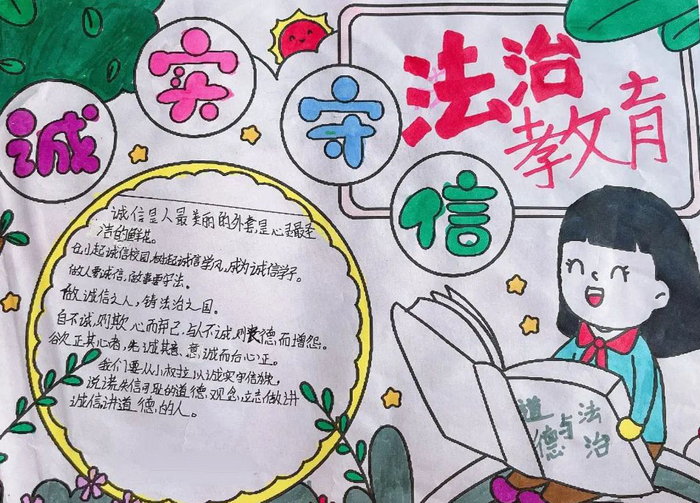 诚实守信
法治
教育
诚信是人最美丽的外套是心灵最圣
洁的鲜花。
诚信校园,树起诚信学风,成为诚信学子。
做人要诚信,做事要守法。
做诚信之人,铸法治之国。
自不诚,则欺心而弃己,与人不诚,则丧德而增怨。
欲正其心者,先诚其意,意诚而后心正。
我们要从小树立以诚实守信为荣,
说谎失信可耻的道德,观念,立志做讲
诚信讲道德,的人。
道德与法治